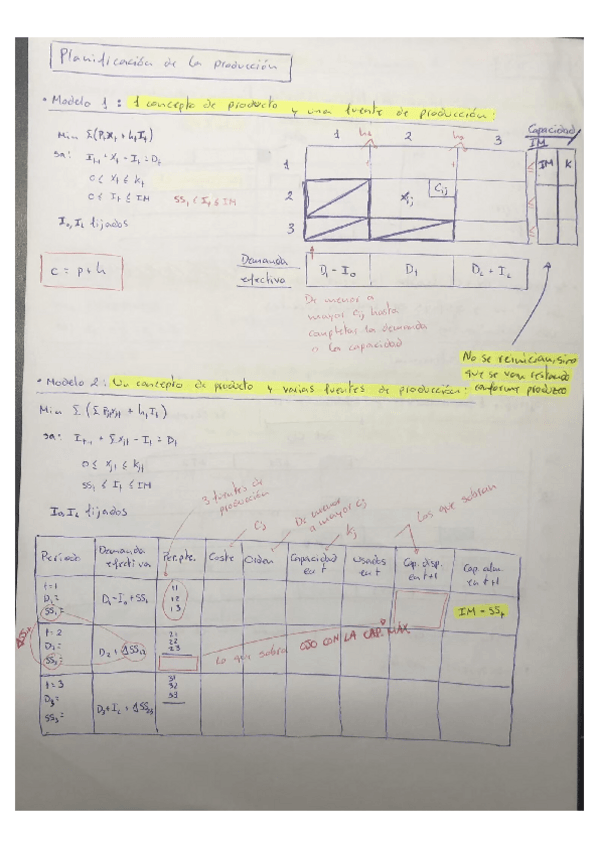 Planificación de la producción
• Modelo 1 : 1 concepto de producto y una fuente de producción:
Min Σ(PₜXₜ + hₜIₜ)
sa: Iₜ₋₁ + Xₜ - Iₜ = Dₜ
0 ≤ Xₜ ≤ kₜ
0 ≤ Iₜ ≤ IM SSₜ ≤ Iₜ ≤ IM
I₀, I_L fijados
c = p + h
1 h₁ 2 h₂ 3
Capacidad/
IM
1 ≤ IM K
2 Xij Cij ≤
3 ≤
Demanda
efectiva
D₁ - I₀ D₁ D_L + I_L
De menor a
mayor cij hasta
completar la demanda
o la capacidad
No se reinician, sino
que se van restando
conforme produzco
• Modelo 2 : Un concepto de producto y varias fuentes de producción:
Min Σ (Σ PjₜXjₜ + hₜIₜ)
sa: Iₜ₋₁ + ΣXjₜ - Iₜ = Dₜ
0 ≤ Xjₜ ≤ kjₜ
SSₜ ≤ Iₜ ≤ IM
I₀, I_L fijados
3 fuentes de
producción
cj
De menor
a mayor cj
kj
Las que sobran
Periodo Demanda efectiva Per.pte. Coste Orden Capacidad en t Usados en t Cap. disp. en t+1 Cap. alm. en t+1
t = 1
D₁ = D₁ - I₀ + SS₁
SS₁ =
11
12
13
IM - SSₜ
t = 2
D₂ = D₂ + ΔSS₁₂
SS₂ =
21
22
23
ΔSS
Lo que sobra OJO CON LA CAP. MÁX
t = 3
D₃ = D₃ + I_L + ΔSS₂₃
SS₃ =
31
32
33